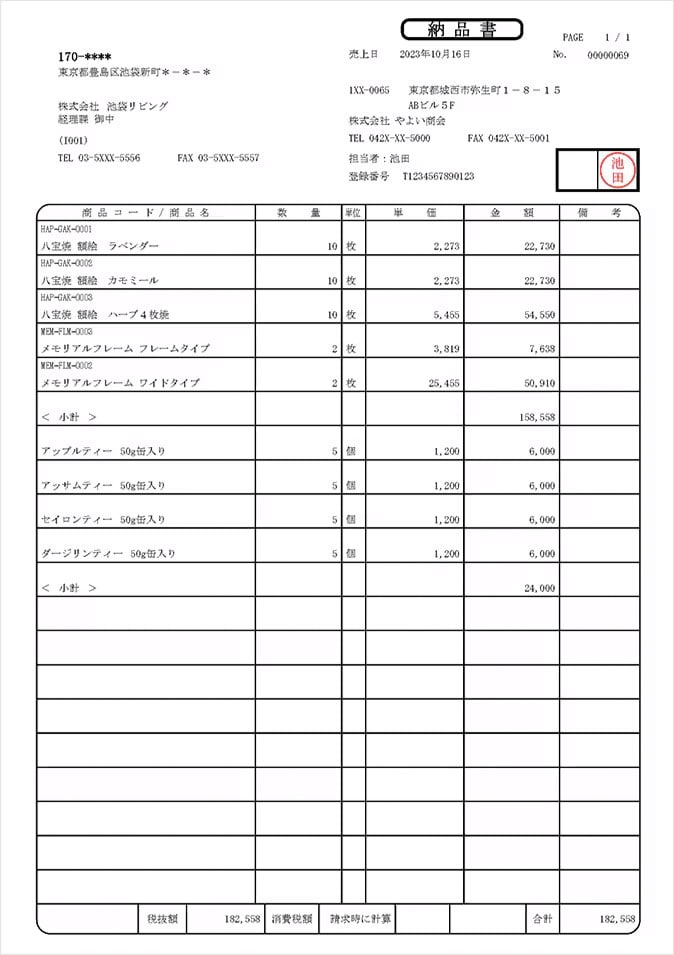 納品書
PAGE 1 / 1
売上日 2023年10月16日 No. 00000069
170-****
東京都豊島区池袋新町＊－＊－＊
株式会社 池袋リビング
経理課 御中
(I001)
TEL 03-5XXX-5556 FAX 03-5XXX-5557
1XX-0065 東京都城西市弥生町１－８－１５
ABビル５F
株式会社 やよい商会
TEL 042X-XX-5000 FAX 042X-XX-5001
担当者：池田
登録番号 T1234567890123
池田
商品コード/商品名 数量 単位 単価 金額 備考
HAP-GAK-0001
八宝焼 額絵 ラベンダー 10 枚 2,273 22,730
HAP-GAK-0002
八宝焼 額絵 カモミール 10 枚 2,273 22,730
HAP-GAK-0003
八宝焼 額絵 ハーブ４枚焼 10 枚 5,455 54,550
MEM-FLM-0003
メモリアルフレーム フレームタイプ 2 枚 3,819 7,638
MEM-FLM-0002
メモリアルフレーム ワイドタイプ 2 枚 25,455 50,910
＜ 小計 ＞ 158,558
アップルティー 50g缶入り 5 個 1,200 6,000
アッサムティー 50g缶入り 5 個 1,200 6,000
セイロンティー 50g缶入り 5 個 1,200 6,000
ダージリンティー 50g缶入り 5 個 1,200 6,000
＜ 小計 ＞ 24,000
税抜額 182,558 消費税額 請求時に計算 合計 182,558